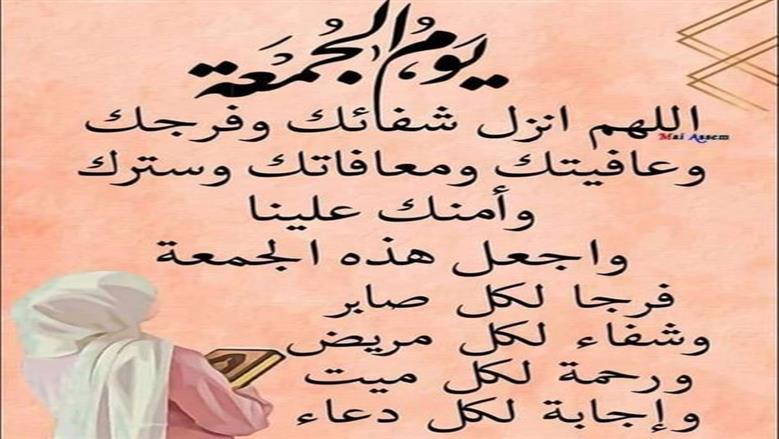 يَومُ الجُمعَة
اللهم انزل شفائك وفرجك
Mai Assem
وعافيتك ومعافاتك وسترك
وأمنك علينا
واجعل هذه الجمعة
فرجا لكل صابر
وشفاء لكل مريض
ورحمة لكل ميت
وإجابة لكل دعاء